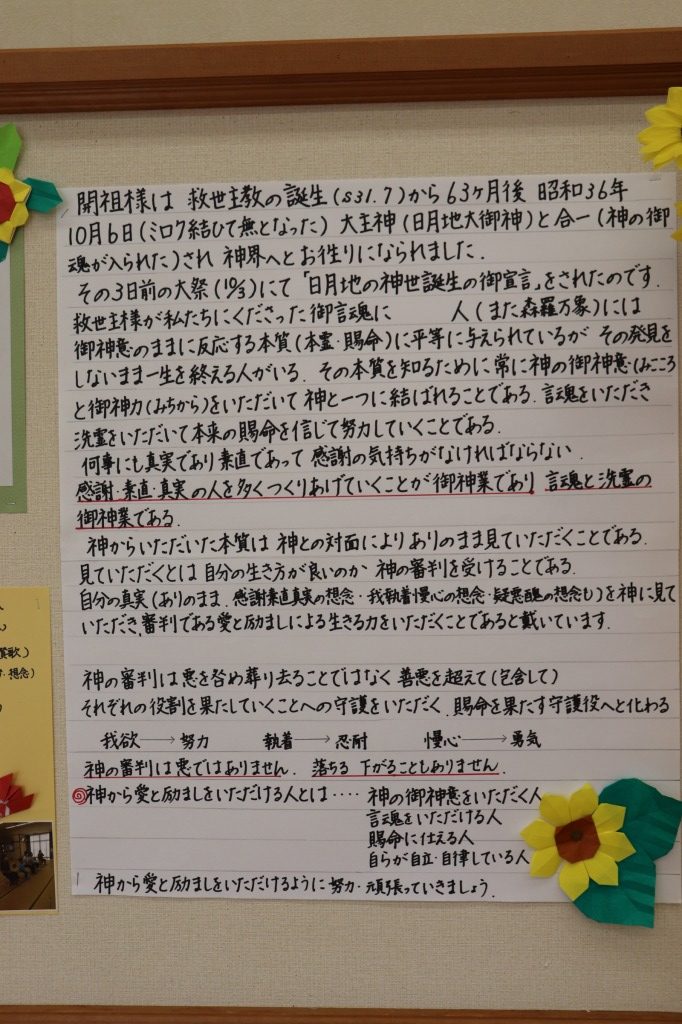 開祖様は 救世主教の誕生(S31.7)から63ヶ月後 昭和36年
10月6日(ミロク結びて無となった) 大主神(日月地大御神)と合一(神の御
魂が入られた)され 神界へとお徃りになられました.
その3日前の大祭(10/3)にて「日月地の神世誕生の御宣言」をされたのです.
救世主様が私たちにくださった御言魂に 人(また森羅万象)には
御神意のままに反応する本質(本霊・賜命)に平等に与えられているが その発見を
しないまま一生を終える人がいる. その本質を知るために常に神の御神意(みこころ
と御神力(みちから)をいただいて 神と一つに結ばれることである. 言魂をいただき
洗霊をいただいて本来の賜命を信じて努力していくことである.
何事にも真実であり素直であって 感謝の気持ちがなければならない.
感謝・素直・真実の人を多くつくりあげていくことが御神業であり 言魂と洗霊の
御神業である.
神からいただいた本質は 神との対面によりありのまま見ていただくことである.
見ていただくとは 自分の生き方が良いのか 神の審判を受けることである.
自分の真実(ありのまま. 感謝素直真実の想念・我執着慢心の想念・疑悪醜の想念も)を神に見て
いただき,審判である愛と励ましによる生きる力をいただくことであると戴いています.
神の審判は悪を咎め葬り去ることではなく 善悪を超えて(包含して)
それぞれの役割を果たしていくことへの守護をいただく. 賜命を果たす守護役へと化わる
我欲→努力 執着→忍耐 慢心→勇気
神の審判は悪ではありません. 落ちる 下がることもありません.
神から愛と励ましをいただける人とは‥‥ 神の御神意をいただく人
言魂をいただける人
賜命に仕える人
自らが自立・自律している人
神から愛と励ましをいただけるように 努力・頑張っていきましょう.
讃歌)
・想念)